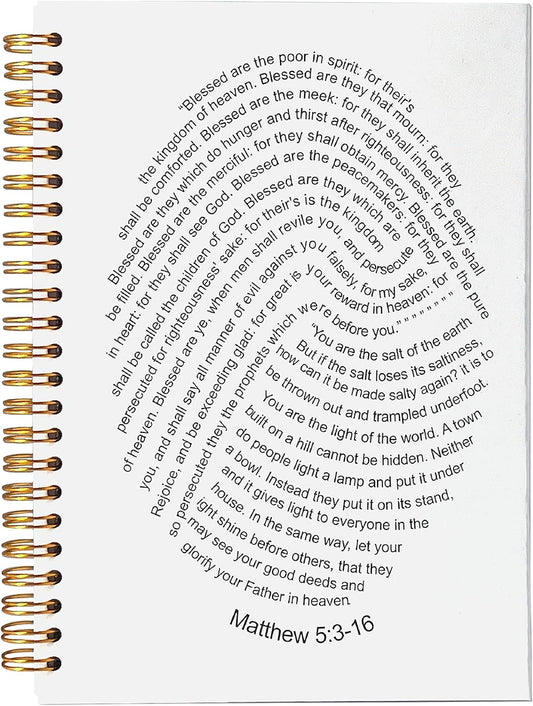 "Blessed are the poor in spirit: for their's
the kingdom of heaven. Blessed are they that mourn: for they
shall be comforted. Blessed are the meek: for they shall inherit the earth.
Blessed are they which do hunger and thirst after righteousness: for they shall
be filled. Blessed are the merciful: for they shall obtain mercy. Blessed are the pure
in heart: for they shall see God. Blessed are the peacemakers: for they
shall be called the children of God. Blessed are they which are
persecuted for righteousness' sake: for their's is the kingdom
of heaven. Blessed are ye, when men shall revile you, and persecute
you, and shall say all manner of evil against you falsely, for my sake.
Rejoice, and be exceeding glad: for great is your reward in heaven: for
so persecuted they the prophets which were before you." " " " " " " "
"You are the salt of the earth
But if the salt loses its saltiness,
how can it be made salty again? it is to
be thrown out and trampled underfoot.
You are the light of the world. A town
built on a hill cannot be hidden. Neither
do people light a lamp and put it under
a bowl. Instead they put it on its stand,
and it gives light to everyone in the
house. In the same way, let your
light shine before others, that they
may see your good deeds and
glorify your Father in heaven.
Matthew 5:3-16